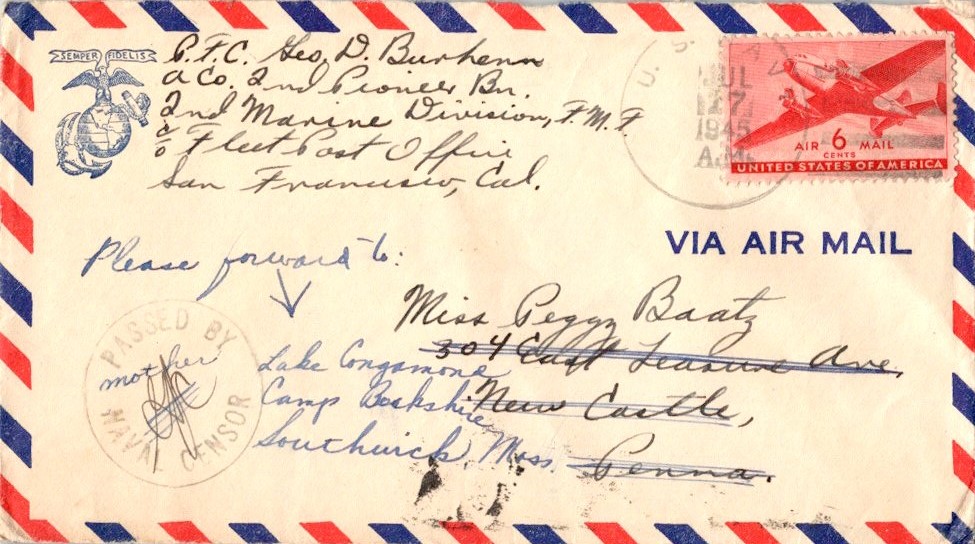 SEMPER FIDELIS
P.F.C. Geo. D. Burhenn
A Co. 2nd Pioneer Bn.
2nd Marine Division, F.M.F.
c/o Fleet Post Office
San Francisco, Cal.
U. S.
JUL
17
1945
A.M.
AIR 6 MAIL
CENTS
UNITED STATES OF AMERICA
VIA AIR MAIL
Please forward to:
Miss Peggy Baatz
304 East Leasure Ave,
New Castle,
Penna.
Lake Congamond
Camp Berkshire
Southwick Mass.
PASSED BY
mother
NAVAL CENSOR